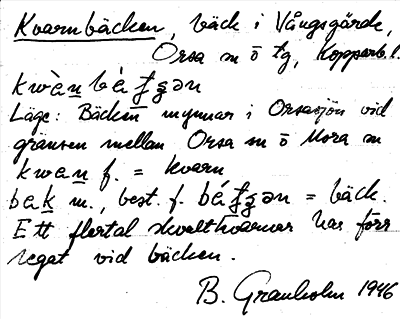 Kvarnbäcken, bäck i Vångsgärde,
Orsa sn ö tg, Kopparb. l.
kwàn bà
Läge: Bäcken mynnar i Orsasjön vid
gränsen mellan Orsa sn o Mora sn
kwan f. = kvarn
bak m., best. f. = bäck.
Ett flertal skvaltkvarnar har förr
legat vid bäcken.
B. Granholm 1946